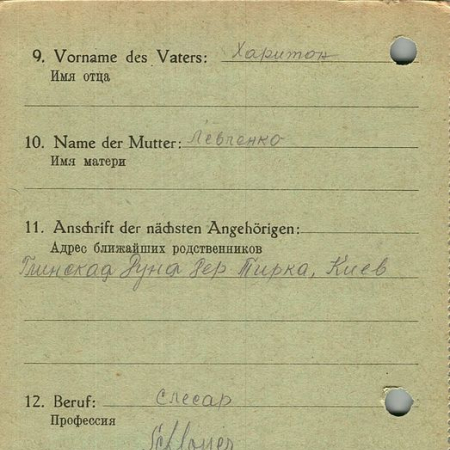 9. Vorname des Vaters: Харитон
Имя отца
10. Name der Mutter: Левченко
Имя матери
11. Anschrift der nächsten Angehörigen:
Адрес ближайших родственников
Киев
12. Beruf: слесар
Профессия